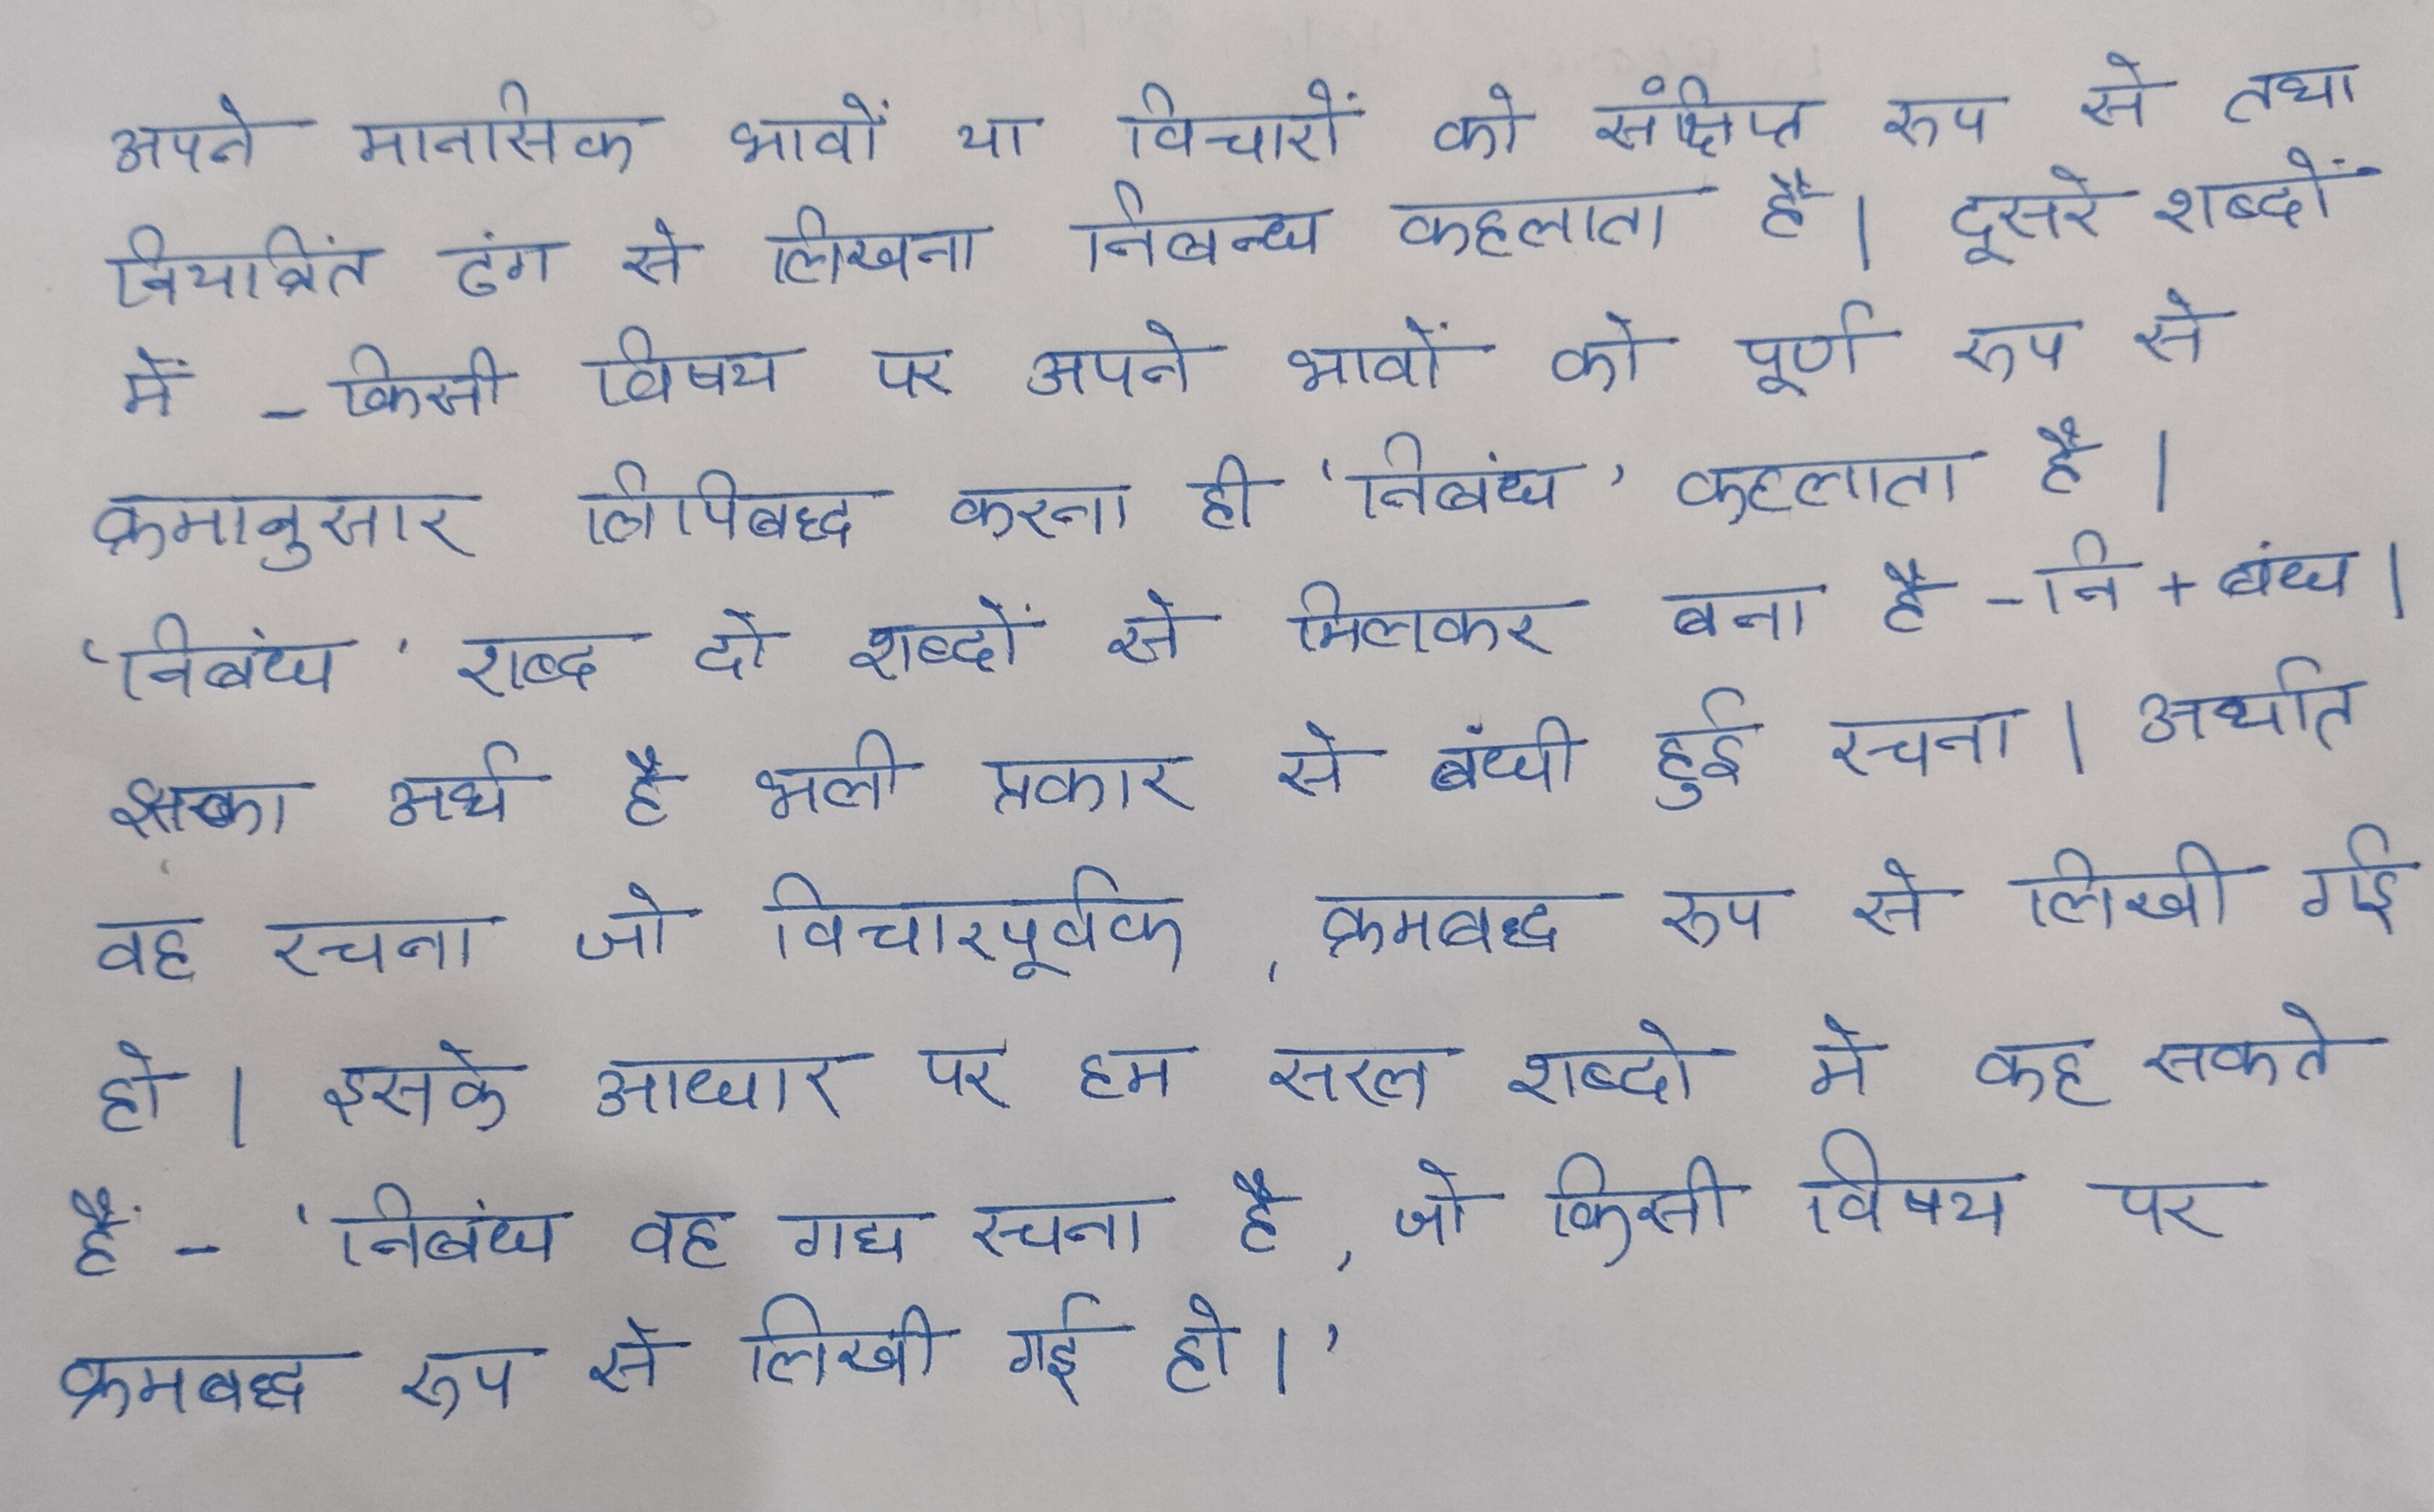 अपने मानसिक भावों या विचारों को संक्षिप्त रूप से तथा
नियत्रिंत ढंग से लिखना निबन्ध कहलाता है। दूसरे शब्दों
में - किसी विषय पर अपने भावों को पूर्ण रूप से
क्रमानुसार लिपिबद्ध करना ही 'निबंध' कहलाता है।
'निबंध' शब्द दो शब्दों से मिलकर बना है - नि + बंध।
इसका अर्थ है भली प्रकार से बंधी हुई रचना। अर्थात
वह रचना जो विचारपूर्वक, क्रमबद्ध रूप से लिखी गई
हो। इसके आधार पर हम सरल शब्दो मे कह सकते
हैं - 'निबंध वह गद्य रचना है, जो किसी विषय पर
क्रमबद्ध रूप से लिखी गई हो।'